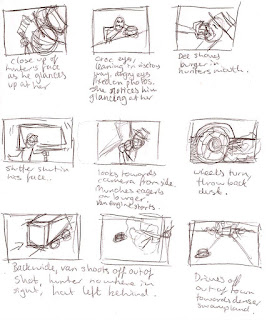 close up of
hunter's face
as he glances
up at her
leaning in
eyes
photos.
She notices him
glancing at her
Dee shoves
burger in
hunters mouth.
his face...
looks towards
camera from side.
Munches eagerly
on burger.
Van engine starts.
wheels turn,
throw back
dust.
Back wide, van shoots off out of
shot, hunter nowhere in
sight, hat left behind.
Drives off
out of town
towards denser
swampland.